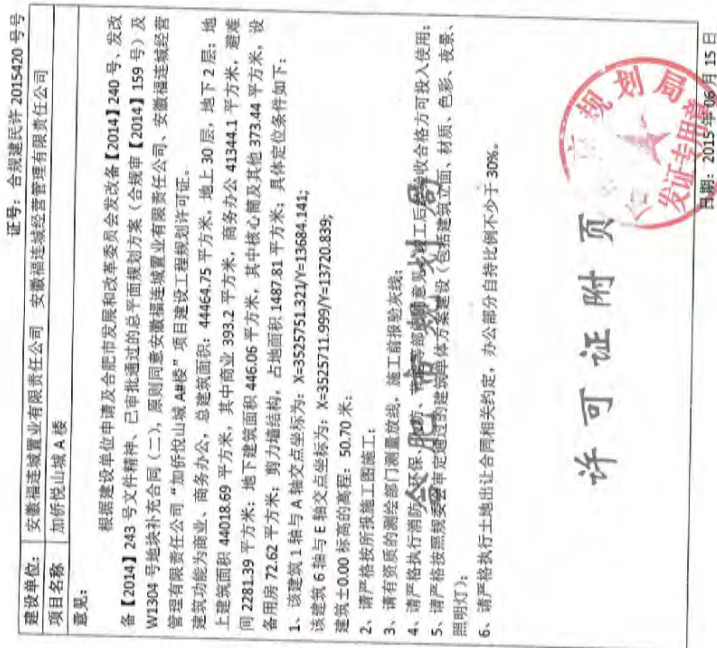 证号：合规建民许 2015420 号号
建设单位： 安徽福连城置业有限责任公司 安徽福连城经营管理有限责任公司
项目名称 加侨悦山城 A 楼
意见：
根据建设单位申请及合肥市发展和改革委员会发改备【2014】240 号、发改
备【2014】243 号文件精神、已审批通过的总平面规划方案（合规审【2014】159 号）及
W1304 号地块补充合同（二），原则同意安徽福连城置业有限责任公司、安徽福连城经营
管理有限责任公司“加侨悦山城 A#楼”项目建设工程规划许可证。
建筑功能为商业、商务办公，总建筑面积：44464.75 平方米，地上 30 层，地下 2 层；地
上建筑面积 44018.69 平方米，其中商业 393.2 平方米，商务办公 41344.1 平方米，避难
间 2281.39 平方米；地下建筑面积 446.06 平方米，其中核心筒及其他 373.44 平方米，设
备用房 72.62 平方米；剪力墙结构，占地面积 1487.81 平方米；具体定位条件如下：
1、该建筑 1 轴与 A 轴交点坐标为：X=3525751.321/Y=13684.141;
该建筑 6 轴与 E 轴交点坐标为：X=3525711.999/Y=13720.839;
建筑±0.00 标高的高程：50.70 米；
2、请严格按所报施工图施工；
3、请有资质的测绘部门测量放线，施工前报验灰线；
4、请严格执行消防、环保、等部门意见，竣工后经验收合格方可投入使用；
5、请严格按照规委会审定通过的建筑单体方案建设（包括建筑立面、材质、色彩、夜景、
照明灯）；
6、请严格执行土地出让合同相关约定，办公部分自持比例不少于 30%。
合肥市规划局
许可证附页
规划局
发证专用章
日期：2015 年 06 月 15 日